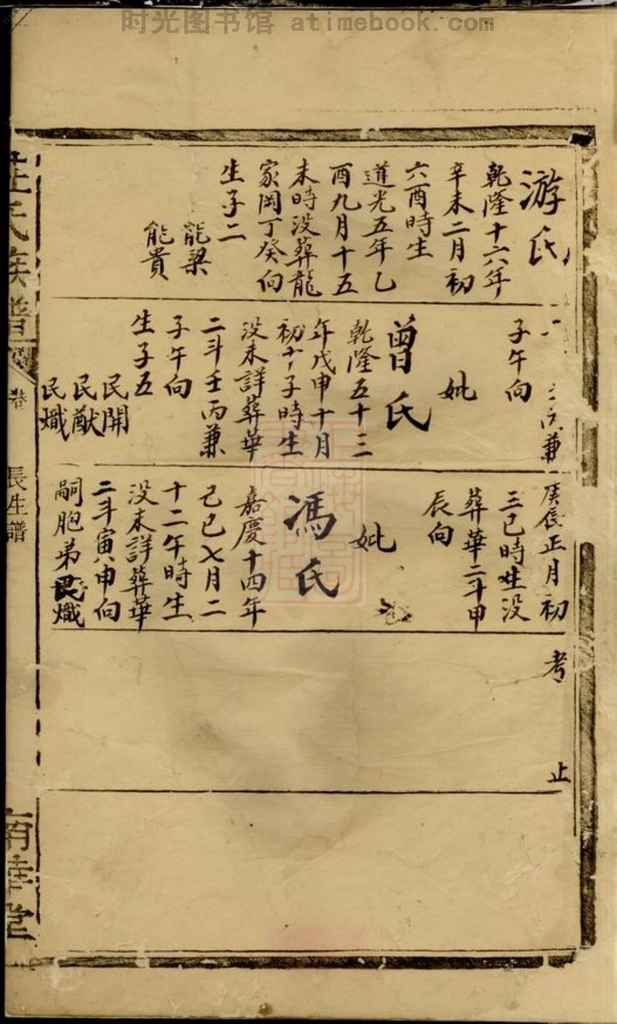 时光图书馆 atimebook.com
游氏
乾隆十六年
辛未二月初
六酉時生
道光五年乙
酉九月十五
未時没葬龍
家岡丁癸向
生子二
能梁
能貴
兼
子午向
妣
曾氏
乾隆五十三
年戊申十月
初十子時生
没未詳葬華
二斗壬丙兼
子午向
生子五
民開
民猷
民熾
庚辰正月初
三巳時生没
葬華二斗申
辰向
妣
馮氏
嘉慶十四年
己巳七月二
十二午時生
没未詳葬華
二斗寅申向
嗣胞弟民熾
考
止
氏族譜
卷
長生譜
南華堂